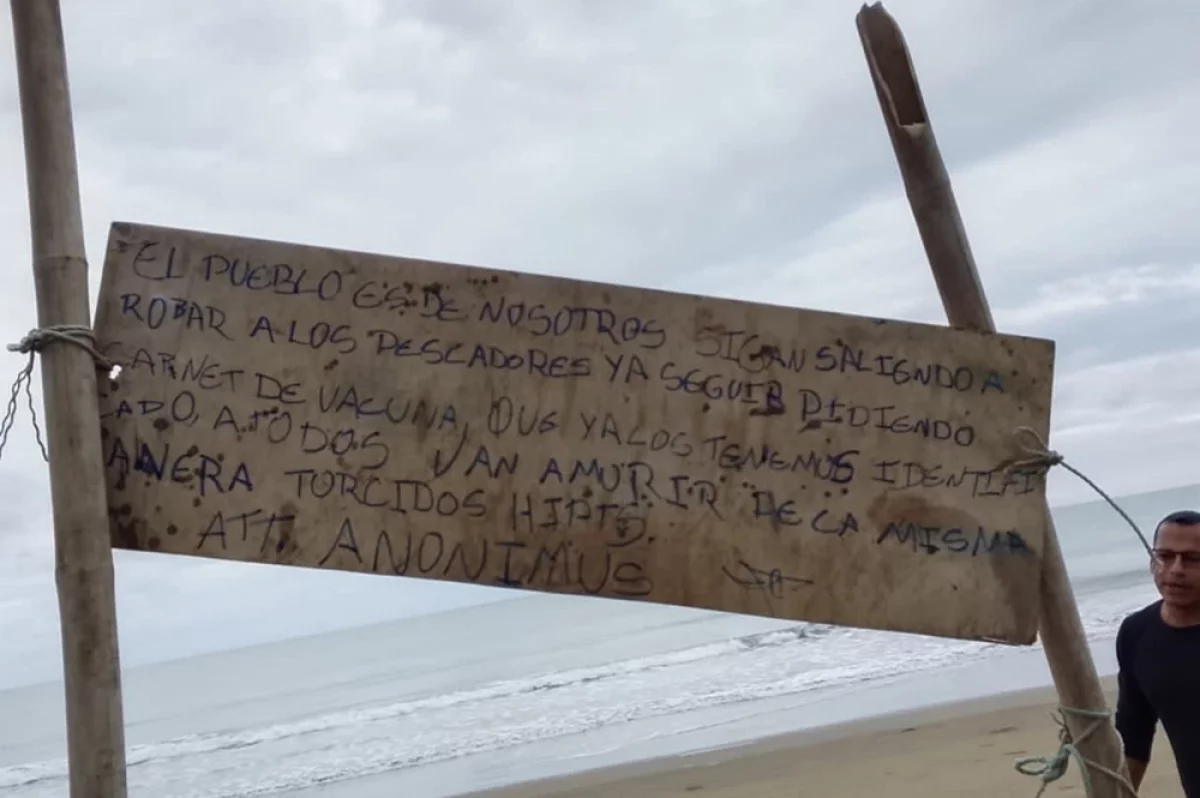 EL PUEBLO ES DE NOSOTROS SIGAN SALIENDO A
ROBAR A LOS PESCADORES YA SEGUIR PIDIENDO
CARNET DE VACUNA, QUE YA LOS TENEMOS IDENTIFI
CADO, A TODOS VAN AMURIR DE LA MISMA
ANERA TORCIDOS
ATT. ANONIMUS